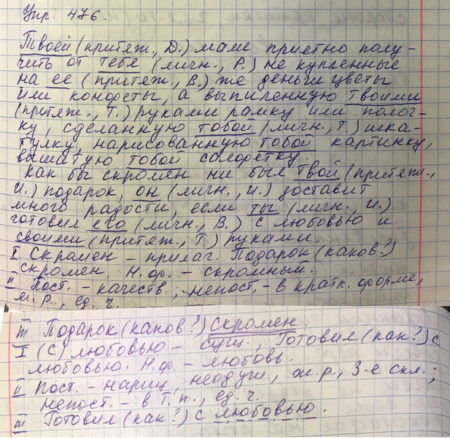 Упр. 476.
Твоей (притяж., Д.) маме приятно полу-
чить от тебя (личн., Р.) не купленные
на её (притяж., В.) же деньги цветы
или конфеты, а выпиленную твоими
(притяж., Т.) руками рамку или полоч-
ку, сделанную тобой (личн., Т.) шка-
тулку, нарисованную тобой картинку,
вышитую тобой салфетку.
Как бы скромен ни был твой (притяж.,
И.) подарок, он (личн., И.) доставит
много радости, если ты (личн., И.)
готовил его (личн., В.) с любовью и
своими (притяж., Т.) руками.
I Скромен – прилаг. Подарок (каков?)
скромен. Н.ф. – скромный.
II Пост. – качеств.; непост. – в кратк. форме,
м. р., ед. ч.
III Подарок (каков?) скромен
I (С) любовью – сущ., Готовил (как?) с
любовью. Н.ф – любовь.
II Пост. – нариц., неодуш., ж.р, 3-е скл.;
непост. – в Т.п., ед. ч.
III Готовил (как?) с любовью.